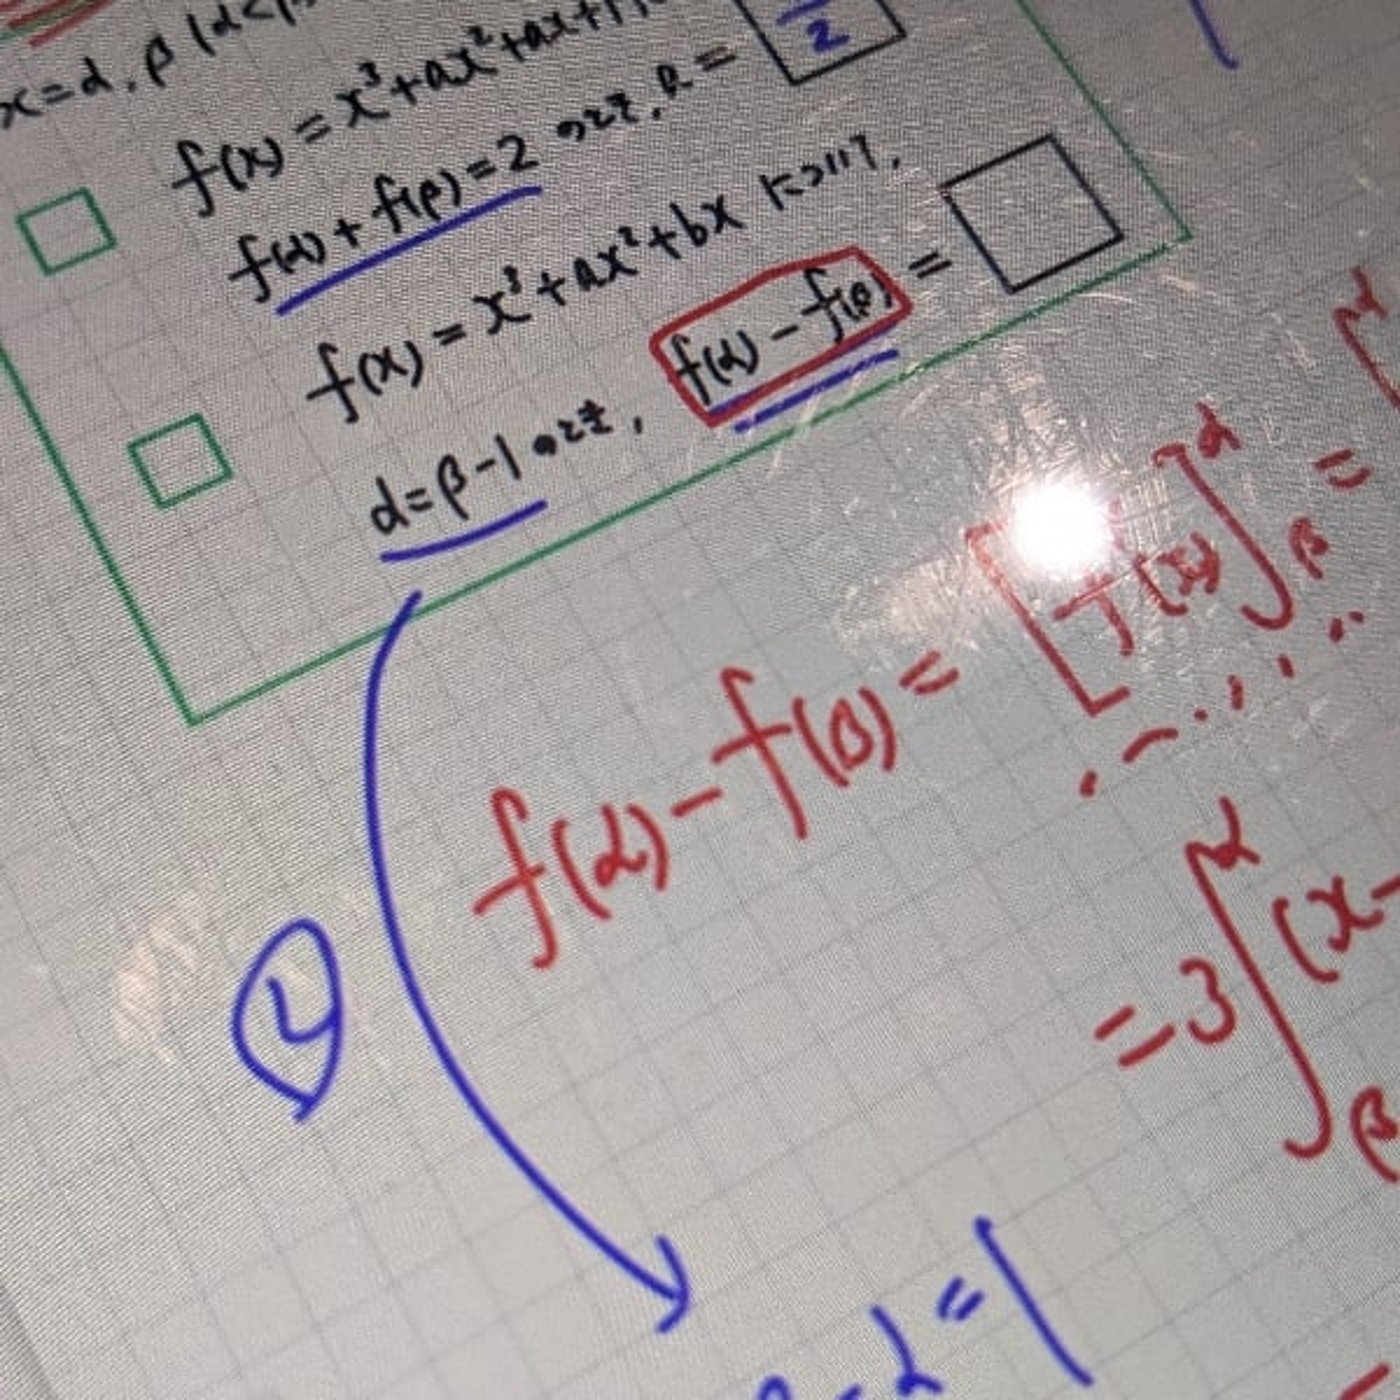 x=α, β (α<β
f(x) = x³+ax²+ax+1
f(α)+f(β)=2 のとき, a = 2
f(x) = x³+ax²+bx について,
α=β-1 のとき, f(α)-f(β) =
f(α)-f(β) = [f(x)]
α
β
=
α
= 3∫ (x-
α
β
-α=1